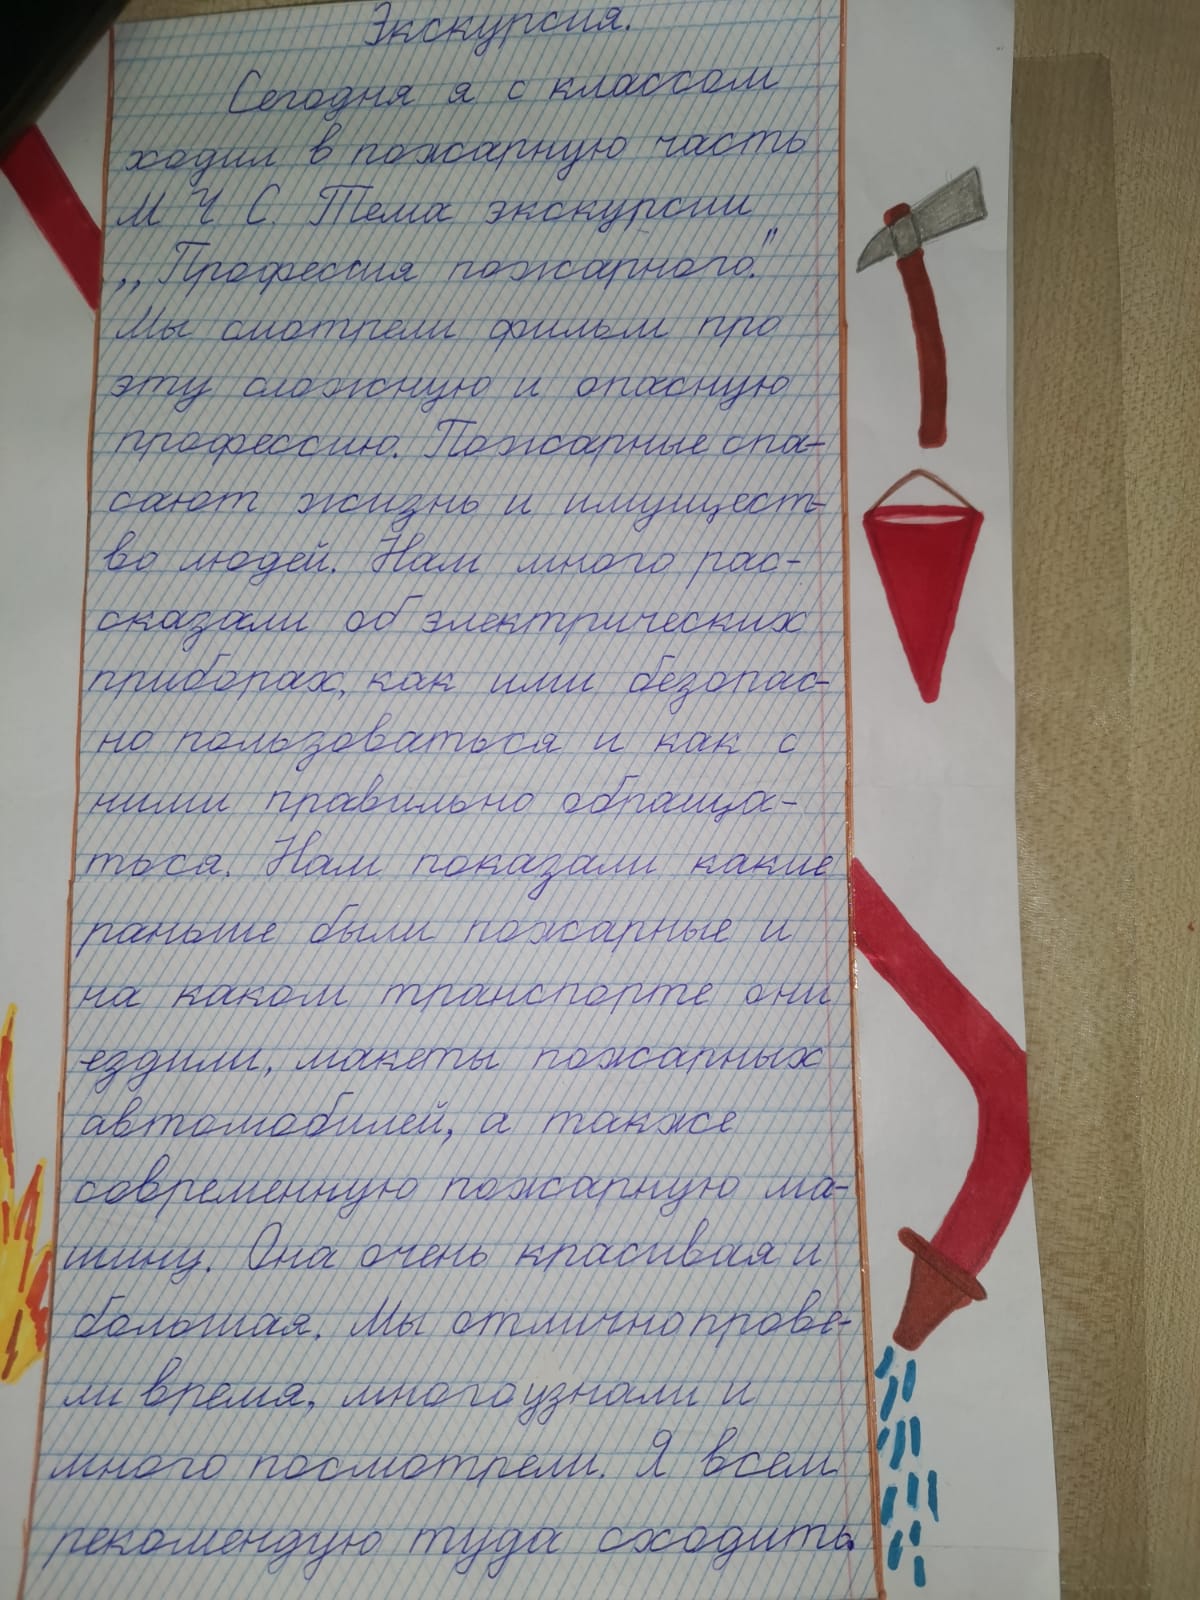 Экскурсия.
Сегодня я с классом
ходил в пожарную часть
М Ч С. Тема экскурсии
„Профессия пожарного."
Мы смотрели фильм про
эту сложную и опасную
профессию. Пожарные спа-
сают жизнь и имущест-
во людей. Нам много рас-
сказали об электрических
приборах, как ими безопас-
но пользоваться и как с
ними правильно обраща-
ться. Нам показали какие
раньше были пожарные и
на каком транспорте они
ездили, макеты пожарных
автомобилей, а также
современную пожарную ма-
шину. Она очень красивая и
большая. Мы отлично прове-
ли время, много узнали и
много посмотрели. Я всем
рекомендую туда сходить.